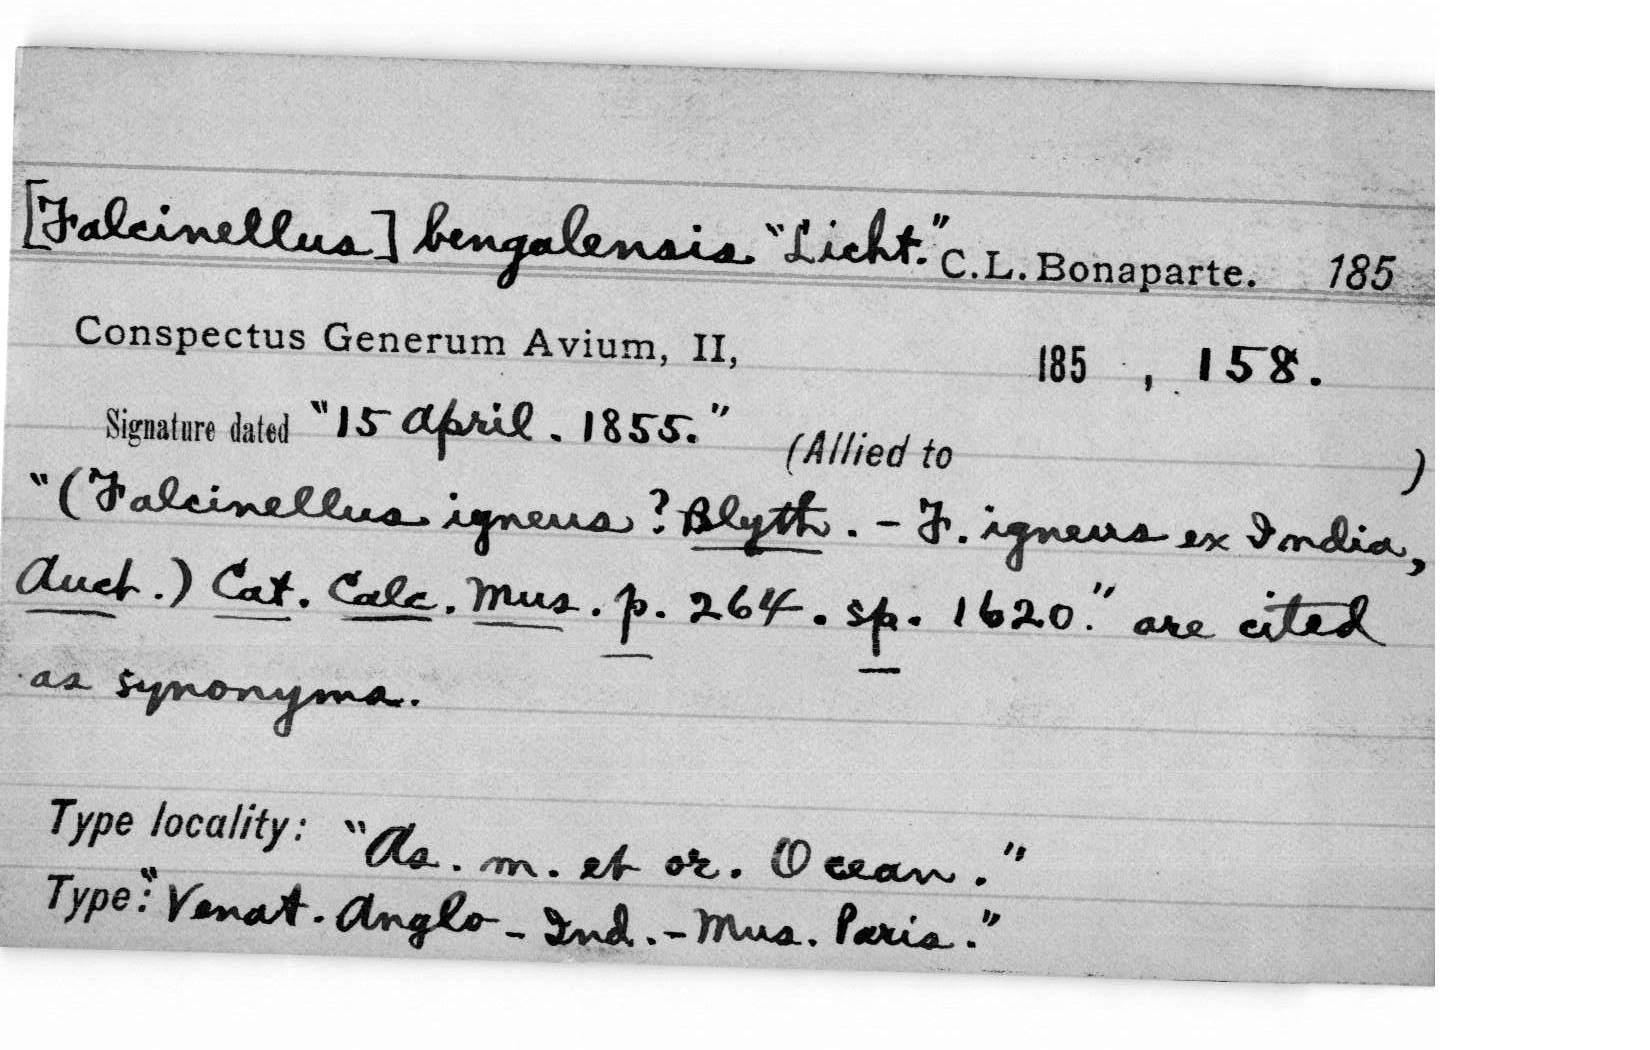 [Falcinellus] bengalensis "Licht." C.L. Bonaparte. 185
Conspectus Generum Avium, II, 185 , 158.
Signature dated "15 April. 1855." (Allied to )
"(Falcinellus igneus? Blyth. - F. igneus ex India,
Auct.) Cat. Calc. Mus. p. 264. sp. 1620." are cited
as synonyms.
Type locality: "As. m. et or. Ocean."
Type: "Venat. Anglo-Ind. - Mus. Paris."